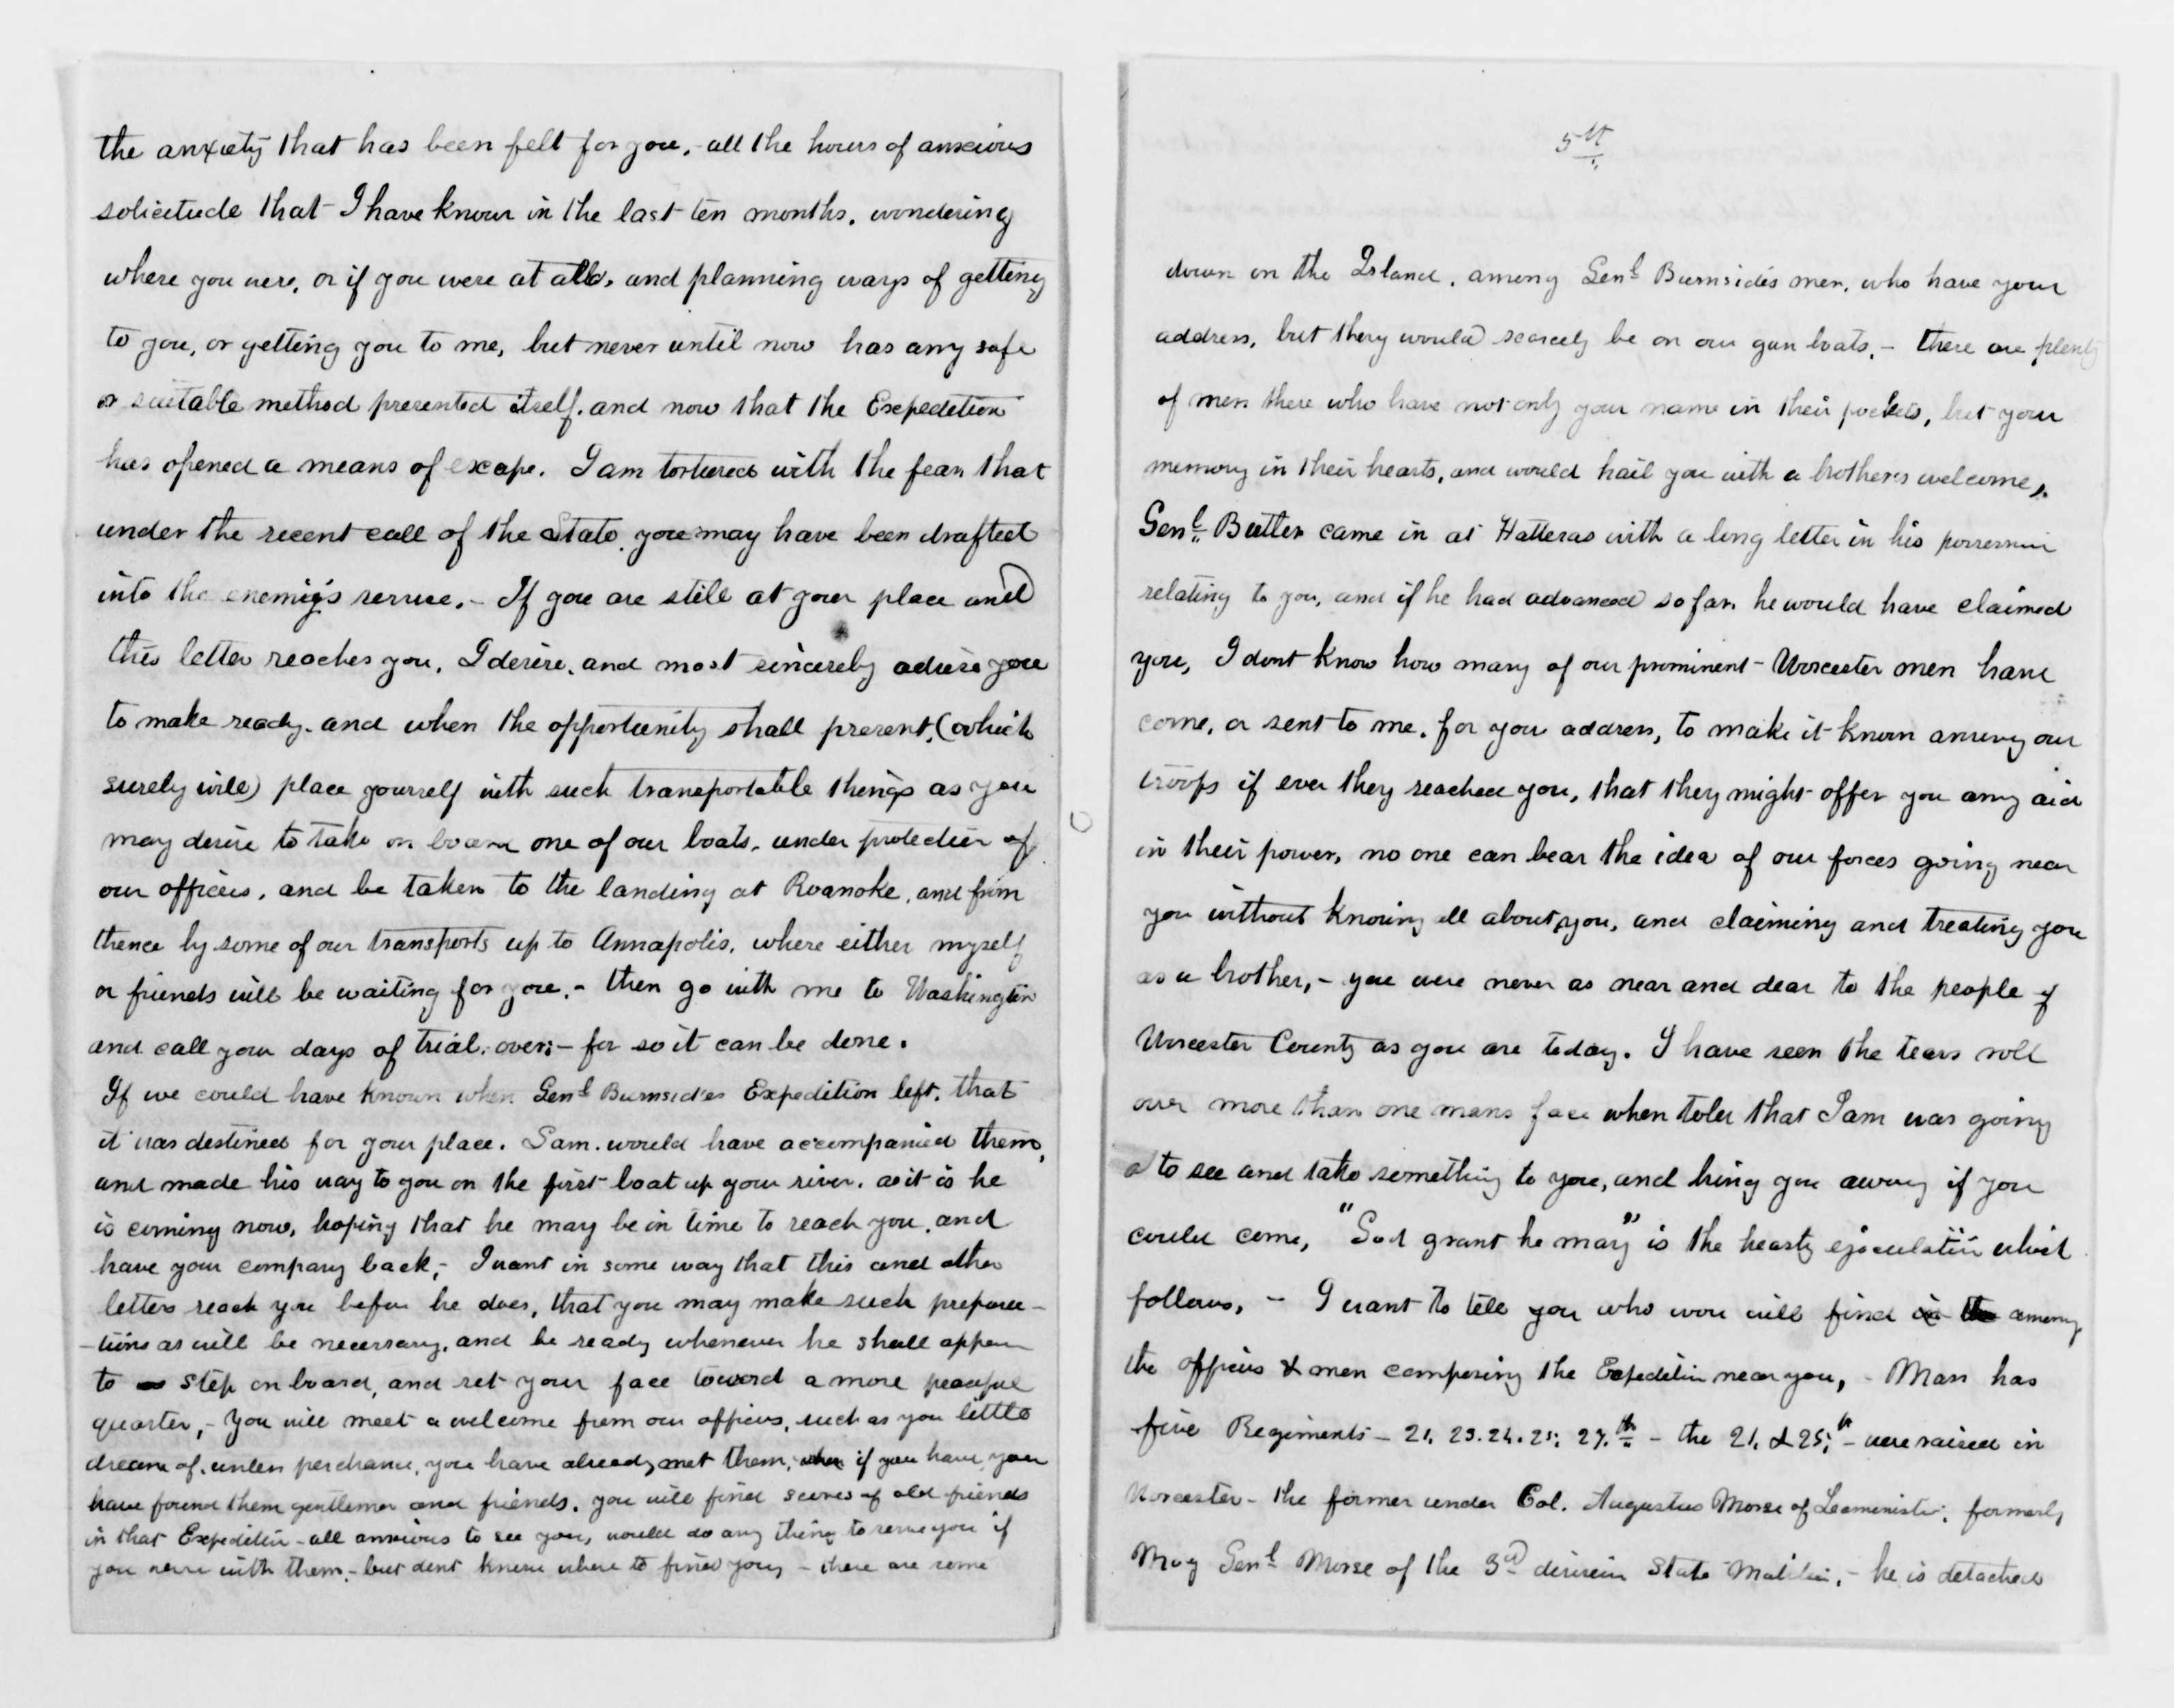 the anxiety that has been felt for you, - all the hours of anxious
solicitude that I have known in the last ten months, wondering
where you were, or if you were at all, and planning ways of getting
to you, or getting you to me, but never until now has any safe
or suitable method presented itself, and now that the Expedition
has opened a means of escape, I am tortured with the fear that
under the recent call of the State, you may have been drafted
into the enemy's service. - If you are still at your place and
this letter reaches you, I desire, and most sincerely advise you
to make ready, and when the opportunity shall present, (which
surely will) place yourself with such transportable things as you
may desire to take on board one of our boats, under protection of
our officers, and be taken to the landing at Roanoke, and from
thence by some of our transports up to Annapolis, where either myself
or friends will be waiting for you. - then go with me to Washington
and call your days of trial, over; - for so it can be done.
If we could have known when Genl Burnsides Expedition left, that
it was destined for your place, Sam. would have accompanied them,
and made his way to you on the first boat up your river, as it is he
is coming now, hoping that he may be in time to reach you, and
have your company back, - I want in some way that this and other
letters reach you before he does, that you may make such prepara-
-tions as will be necessary, and be ready whenever he shall appear
to step on board, and set your face toward a more peaceful
quarter, - You will meet a welcome from our officers, such as you little
dream of, unless perchance, you have already met them, if you have, you
have found them gentlemen and friends, you will find scores of old friends
in that Expedition - all anxious to see you, would do any thing to serve you if
you were with them, - but dont know where to find you, - there are some
5th
down on the Island, among Genl Burnsides men, who have your
address, but they would scarcely be on our gun boats, - there are plenty
of men there who have not only your name in their pockets, but your
memory in their hearts, and would hail you with a brothers welcome,
Genl Butler came in at Hatteras with a long letter in his possession
relating to you, and if he had advanced so far, he would have claimed
you, I dont know how many of our prominent Worcester men have
come, or sent to me, for your address, to make it known among our
troops if ever they reached you, that they might offer you any aid
in their power, no one can bear the idea of our forces going near
you without knowing all about you, and claiming and treating you
as a brother, - you were never as near and dear to the people of
Worcester County as you are today. I have seen the tears roll
over more than one mans face when told that Sam was going
to see and take something to you, and bring you away if you
could come, "God grant he may" is the hearty ejaculation which
follows, - I want to tell you who wou will find in the among
the officers & men composing the Expedition near you, - Mass has
five Regiments - 21. 23. 24. 25. 27.th - the 21. & 25.th - were raised in
Worcester - the former under Col. Augustus Morse of Leominister, formerly
Maj Genl Morse of the 3d division State Militia, - he is detached